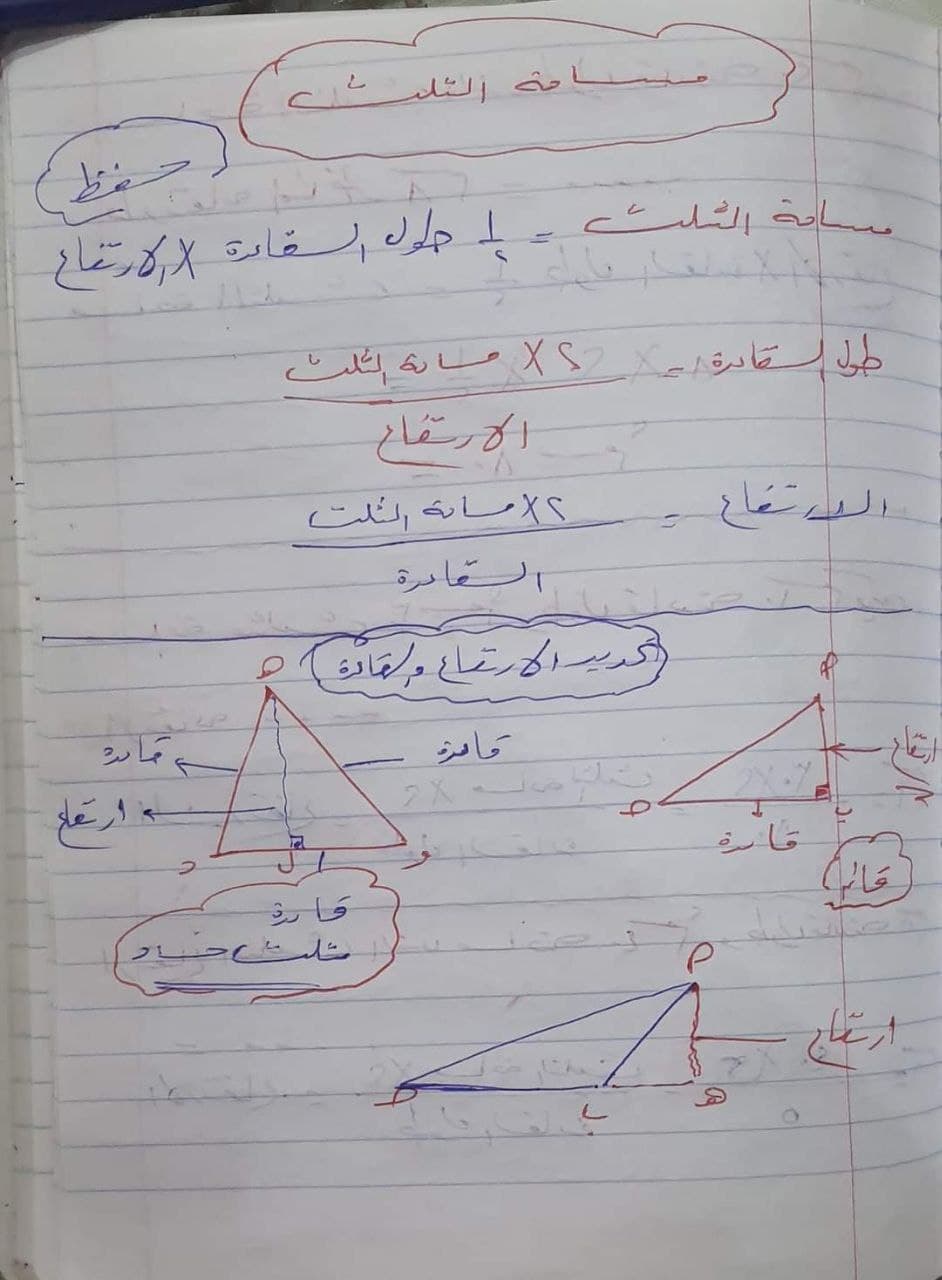 مساحة المثلث
حفظ
مساحة المثلث = ١/٢ طول القاعدة X الارتفاع
طول القاعدة = ٢ X مساحة المثلث
الارتفاع
الارتفاع = ٢X مساحة المثلث
القاعدة
تحديد الارتفاع والقاعدة
P
ارتفاع
ب
قاعدة
قائم
قاعدة
قاعدة
ارتفاع
د
و
قاعدة
مثلث حاد
P
ارتفاع
ب
هـ